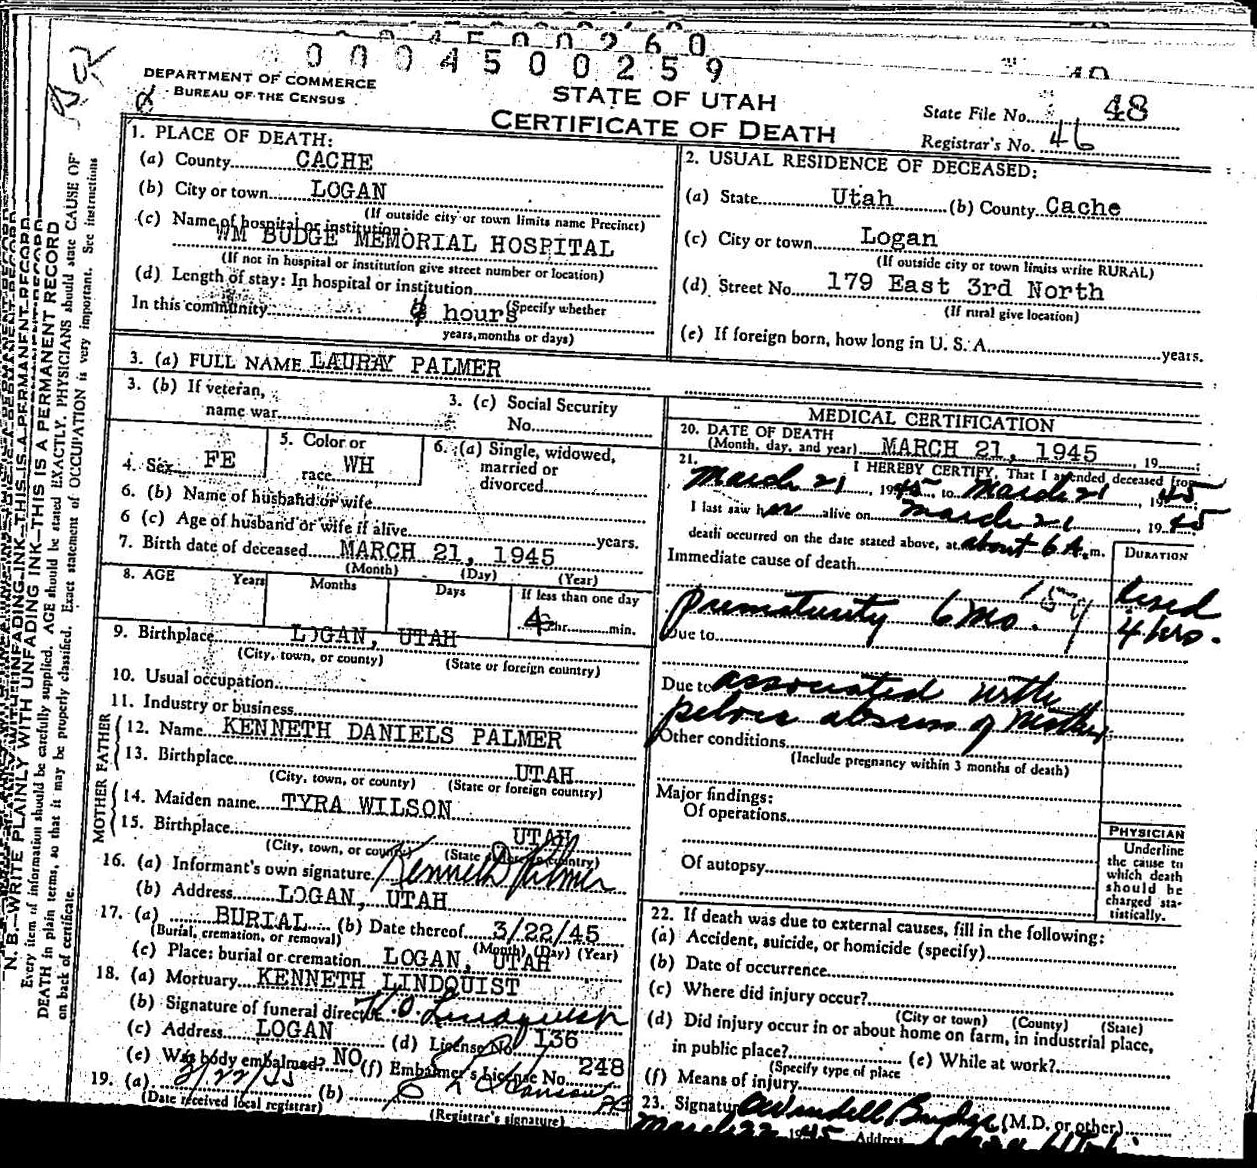 0004500260
0004500259
DEPARTMENT OF COMMERCE
BUREAU OF THE CENSUS
STATE OF UTAH
CERTIFICATE OF DEATH
State File No. 48
Registrar's No. 46
1. PLACE OF DEATH:
(a) County CACHE
(b) City or town LOGAN
(If outside city or town limits name Precinct)
(c) Name of hospital or institution:
WM BUDGE MEMORIAL HOSPITAL
(If not in hospital or institution give street number or location)
(d) Length of stay: In hospital or institution
(Specify whether
In this community 4 hours
years, months or days)
2. USUAL RESIDENCE OF DECEASED:
(a) State Utah (b) County Cache
(c) City or town Logan
(If outside city or town limits write RURAL)
(d) Street No. 179 East 3rd North
(If rural give location)
(e) If foreign born, how long in U. S. A. years.
3. (a) FULL NAME LAURAY PALMER
3. (b) If veteran,
name war
3. (c) Social Security
No.
4. Sex FE
5. Color or
race WH
6. (a) Single, widowed,
married or
divorced
6. (b) Name of husband or wife
6 (c) Age of husband or wife if alive years.
7. Birth date of deceased MARCH 21, 1945
(Month) (Day) (Year)
8. AGE Years Months Days If less than one day
4 hr. min.
9. Birthplace LOGAN, UTAH
(City, town, or county) (State or foreign country)
10. Usual occupation
11. Industry or business
FATHER
12. Name KENNETH DANIELS PALMER
13. Birthplace UTAH
(City, town, or county) (State or foreign country)
MOTHER
14. Maiden name TYRA WILSON
15. Birthplace UTAH
(City, town, or county) (State or foreign country)
16. (a) Informant's own signature Kenneth D Palmer
(b) Address LOGAN, UTAH
17. (a) BURIAL (b) Date thereof 3/22/45
(Burial, cremation, or removal) (Month) (Day) (Year)
(c) Place: burial or cremation LOGAN, UTAH
18. (a) Mortuary KENNETH LINDQUIST
(b) Signature of funeral director K.O. Lindquist
(c) Address LOGAN (d) License No. 136
(e) Was body embalmed? NO (f) Embalmer's License No. 248
19. (a) 3/22/45 (b)
(Date received local registrar) (Registrar's signature)
MEDICAL CERTIFICATION
20. DATE OF DEATH
(Month, day, and year) MARCH 21, 1945, 19
21. I HEREBY CERTIFY, That I attended deceased from
March 21, 1945, to March 21, 1945
I last saw her alive on March 21, 1945
death occurred on the date stated above, at about 6 A. m.
DURATION
Immediate cause of death
prematurity 6 mo. 159
lived
4 hrs.
Due to
Due to associated with
pelvic abscess of Mother
Other conditions
(Include pregnancy within 3 months of death)
Major findings:
Of operations
Of autopsy
PHYSICIAN
Underline
the cause to
which death
should be
charged sta-
tistically.
22. If death was due to external causes, fill in the following:
(a) Accident, suicide, or homicide (specify)
(b) Date of occurrence
(c) Where did injury occur?
(City or town) (County) (State)
(d) Did injury occur in or about home on farm, in industrial place,
in public place? (e) While at work?
(Specify type of place
(f) Means of injury
23. Signature Budge (M.D. or other)
March 22 1945 Address Logan Utah
N. B.—WRITE PLAINLY WITH UNFADING INK—THIS IS A PERMANENT RECORD
Every item of information should be carefully supplied. AGE should be stated EXACTLY. PHYSICIANS should state CAUSE OF
DEATH in plain terms, so that it may be properly classified. Exact statement of OCCUPATION is very important. See instructions
on back of certificate.